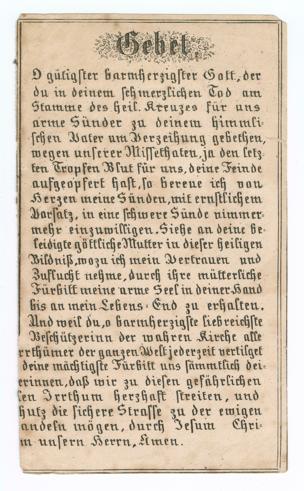 Gebet.
O gütigster barmherzigster Gott, der
du in deinem schmerzlichen Tod am
Stamme des heil. Kreuzes für uns
arme Sünder zu deinem himmli-
schen Vater um Verzeihung gebethen,
wegen unserer Missethaten, ja den letz-
ten Tropfen Blut für uns, deine Feinde
aufgeopfert hast, so bereue ich von
Herzen meine Sünden, mit ernstlichem
Vorsatz, in eine schwere Sünde nimmer-
mehr einzuwilligen. Siehe an deine be-
leidigte göttliche Mutter in dieser heiligen
Bildniß, wozu ich mein Vertrauen und
Zuflucht nehme, durch ihre mütterliche
Fürbitt meine arme Seel in deiner Hand
bis an mein Lebens-End zu erhalten.
Und weil du, o barmherzigste liebreichste
Beschützerinn der wahren Kirche alle
rrthümer der ganzen Welt jederzeit vertilget
deine mächtigste Fürbitt uns sämmtlich dei-
erinnen, daß wir zu diesen gefährlichen
en Irrthum herzhaft streiten, und
hutz die sichere Strasse zu der ewigen
andeln mögen, durch Jesum Chri-
m unsern Herrn, Amen.